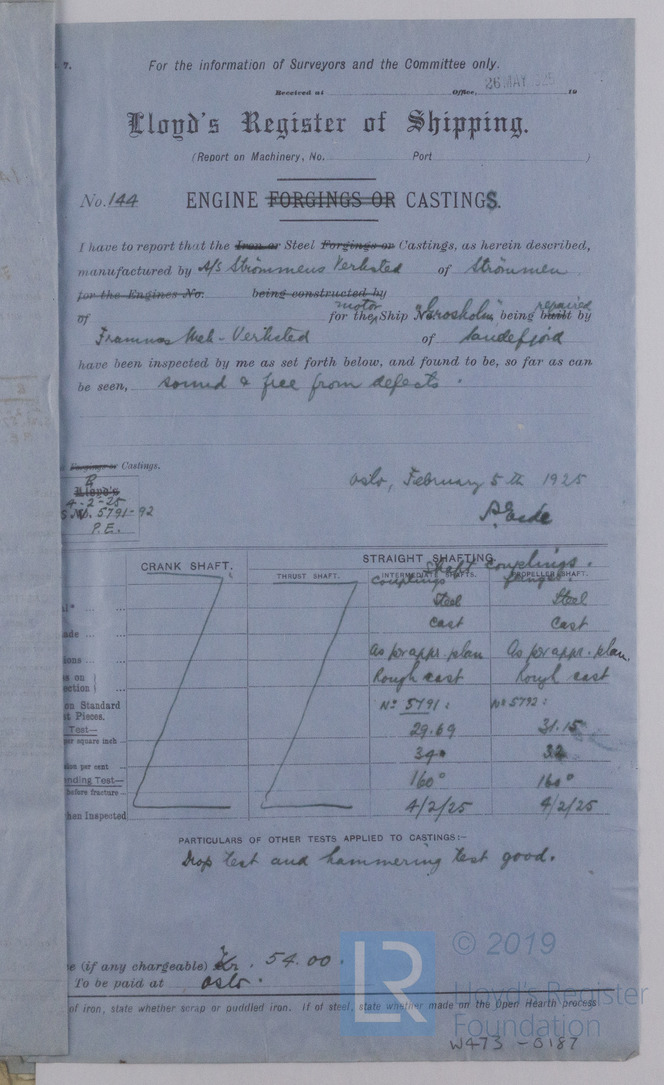 7.
For the information of Surveyors and the Committee only.
Received at Office, 26 MAY 19
Lloyd's Register of Shipping.
(Report on Machinery, No. Port )
No. 144 ENGINE FORGINGS OR CASTINGS.
I have to report that the Iron or Steel Forgings or Castings, as herein described,
manufactured by A/S Strömmens Verksted of Strömmen
for the Engines No. being constructed by
motor repaired
of for the Ship "Norosholm", being built by
Framnæs Mek. Verksted of Sandefjord
have been inspected by me as set forth below, and found to be, so far as can
be seen, sound & free from defects.
Forgings or Castings.
Oslo, February 5th 1925
Lloyd's
4-2-25
No. 5791-92
P.E.
P. Eide
CRANK SHAFT. STRAIGHT SHAFTING.
Shaft couplings.
THRUST SHAFT. INTERMEDIATE SHAFTS. PROPELLER SHAFT.
couplings flanges.
Steel Steel
cast Cast
As per appr. plan As per appr. plan.
Rough cast Rough cast
on Standard
t Pieces. No 5791: No 5792:
Test— 29.69 31.15
per square inch 34 32
per cent
nding Test— 160° 160°
before fracture
hen Inspected 4/2/25 4/2/25
PARTICULARS OF OTHER TESTS APPLIED TO CASTINGS:-
Drop test and hammering test good.
e (if any chargeable) Kr. 54.00.
To be paid at Oslo.
of iron, state whether scrap or puddled iron. If of steel, state whether made on the Open Hearth process
© 2019
LR
Lloyd's Register
Foundation
W473-0187